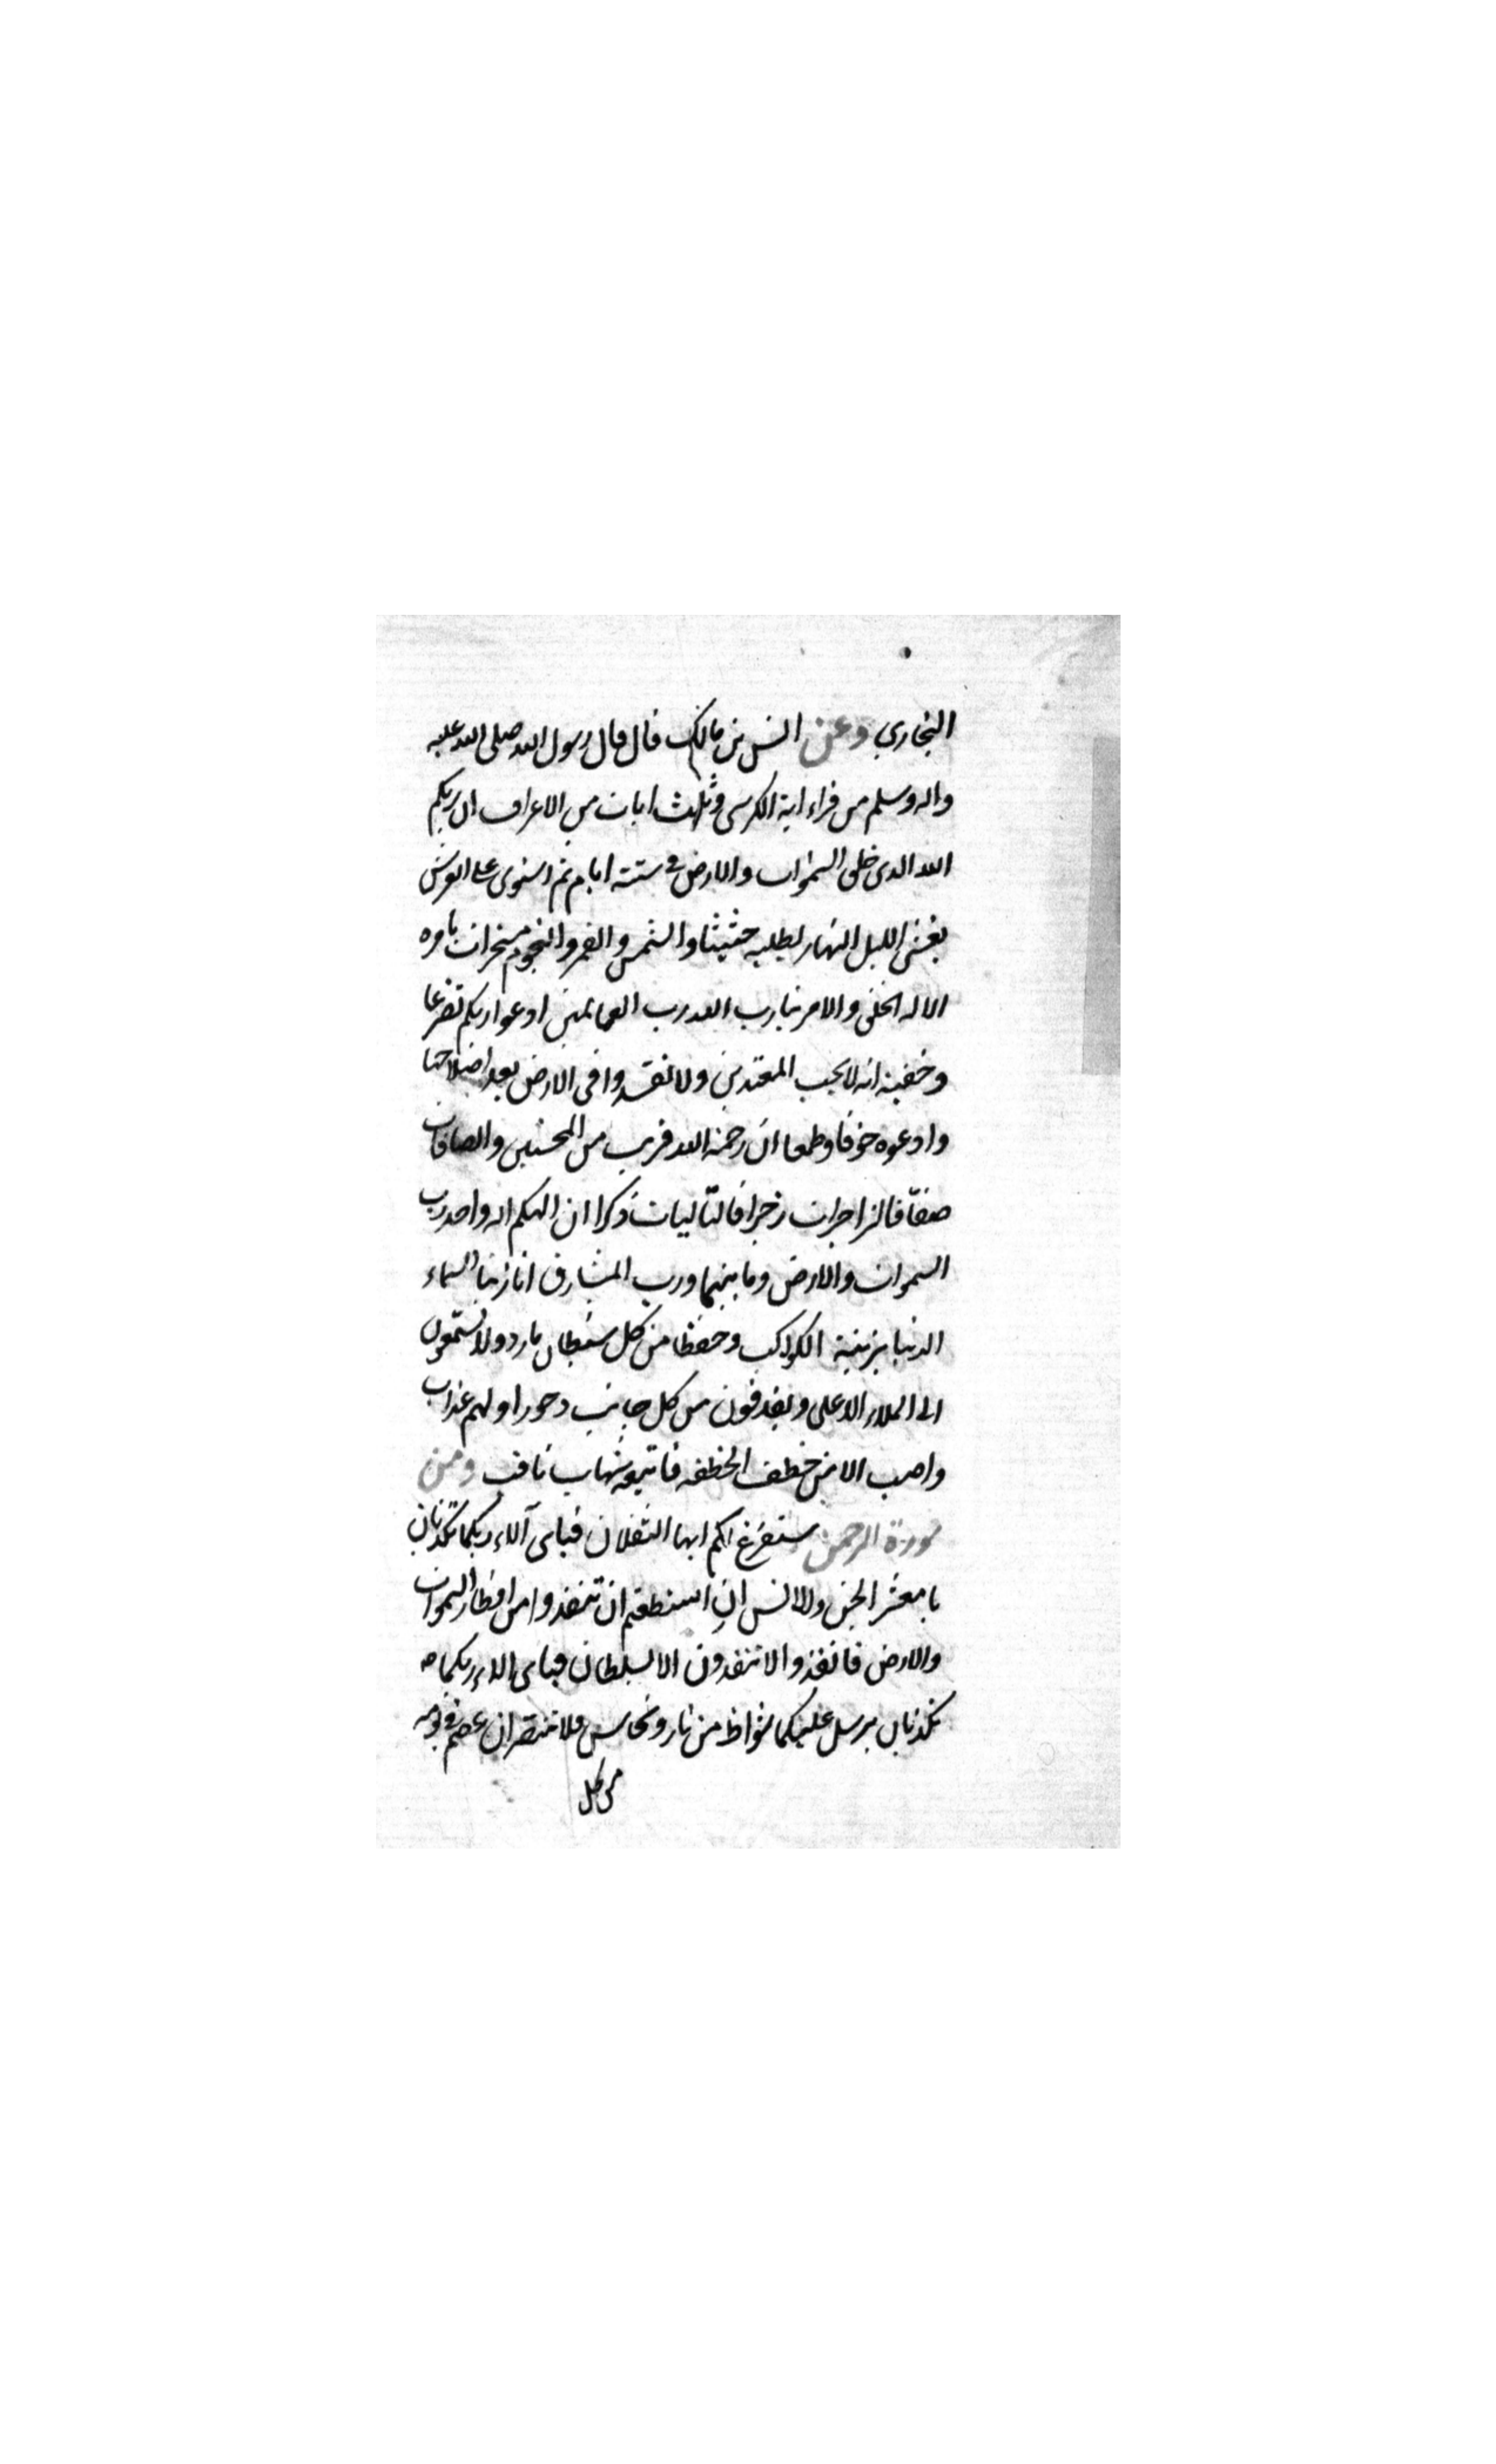 البخاري وعن انس بن مالك قال قال رسول الله صلى الله عليه
واله وسلم من قراء اية الكرسي وثلث ايات من الاعراف ان ربكم
الله الذي خلق السموات والارض في ستة ايام ثم استوى على العرش
يغشى الليل النهار يطلبه حثيثا والشمس والقمر والنجوم مسخرات بامره
الا له الخلق والامر تبارك الله رب العالمين ادعوا ربكم تضرعا
وخفية انه لا يحب المعتدين ولا تفسدوا في الارض بعد اصلاحها
وادعوه خوفا وطمعا ان رحمة الله قريب من المحسنين والصافات
صفّا فالزاجرات زجرا فالتّاليات ذكرا ان الهكم اله واحد رب
السموات والارض وما بينهما ورب المشارق انا زينا السماء
الدنيا بزينة الكواكب وحفظا من كل شيطان مارد ولا يسّمعون
الى الملاء الاعلى ويقذفون من كل جانب دحورا ولهم عذاب
واصب الا من خطف الخطفه فاتبعه شهاب ثاقب ومن
سورة الرحمن سنفرغ لكم ايها الثقلان فباى آلاء ربكما تكذبان
يا معشر الجن والانس ان استطعتم ان تنفذوا من اقطار السموات
والارض فانفذوا لا تنفذون الا بسلطان فباى الاء ربكما
تكذبان يرسل عليكما شواظ من نار ونحاس فلا تنتصران عصم في يومه
من كل